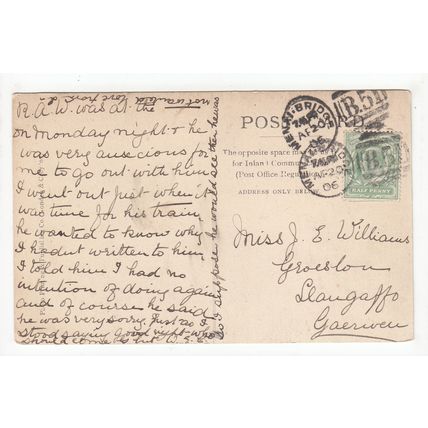 R.A.W. was at the
on Monday night & he
was very auscious for
me to go out with him
I went out just when it
was time for his train,
he wanted to know why
I hadnt written to him
I told him I had no
intention of doing again
and of course he said
he was very sorry. Just as I
stood saying good night who
should come out but W.E.
so I suppose he would see then he was
love from
POST CARD
The opposite space may
for Inland Commu
(Post Office Regulati
ADDRESS ONLY BELOW
MENAI-BRIDGE
AP 20
06
B51
HALF PENNY
Miss J. E. Williams
Groeslon
Llangaffo
Gaerwen